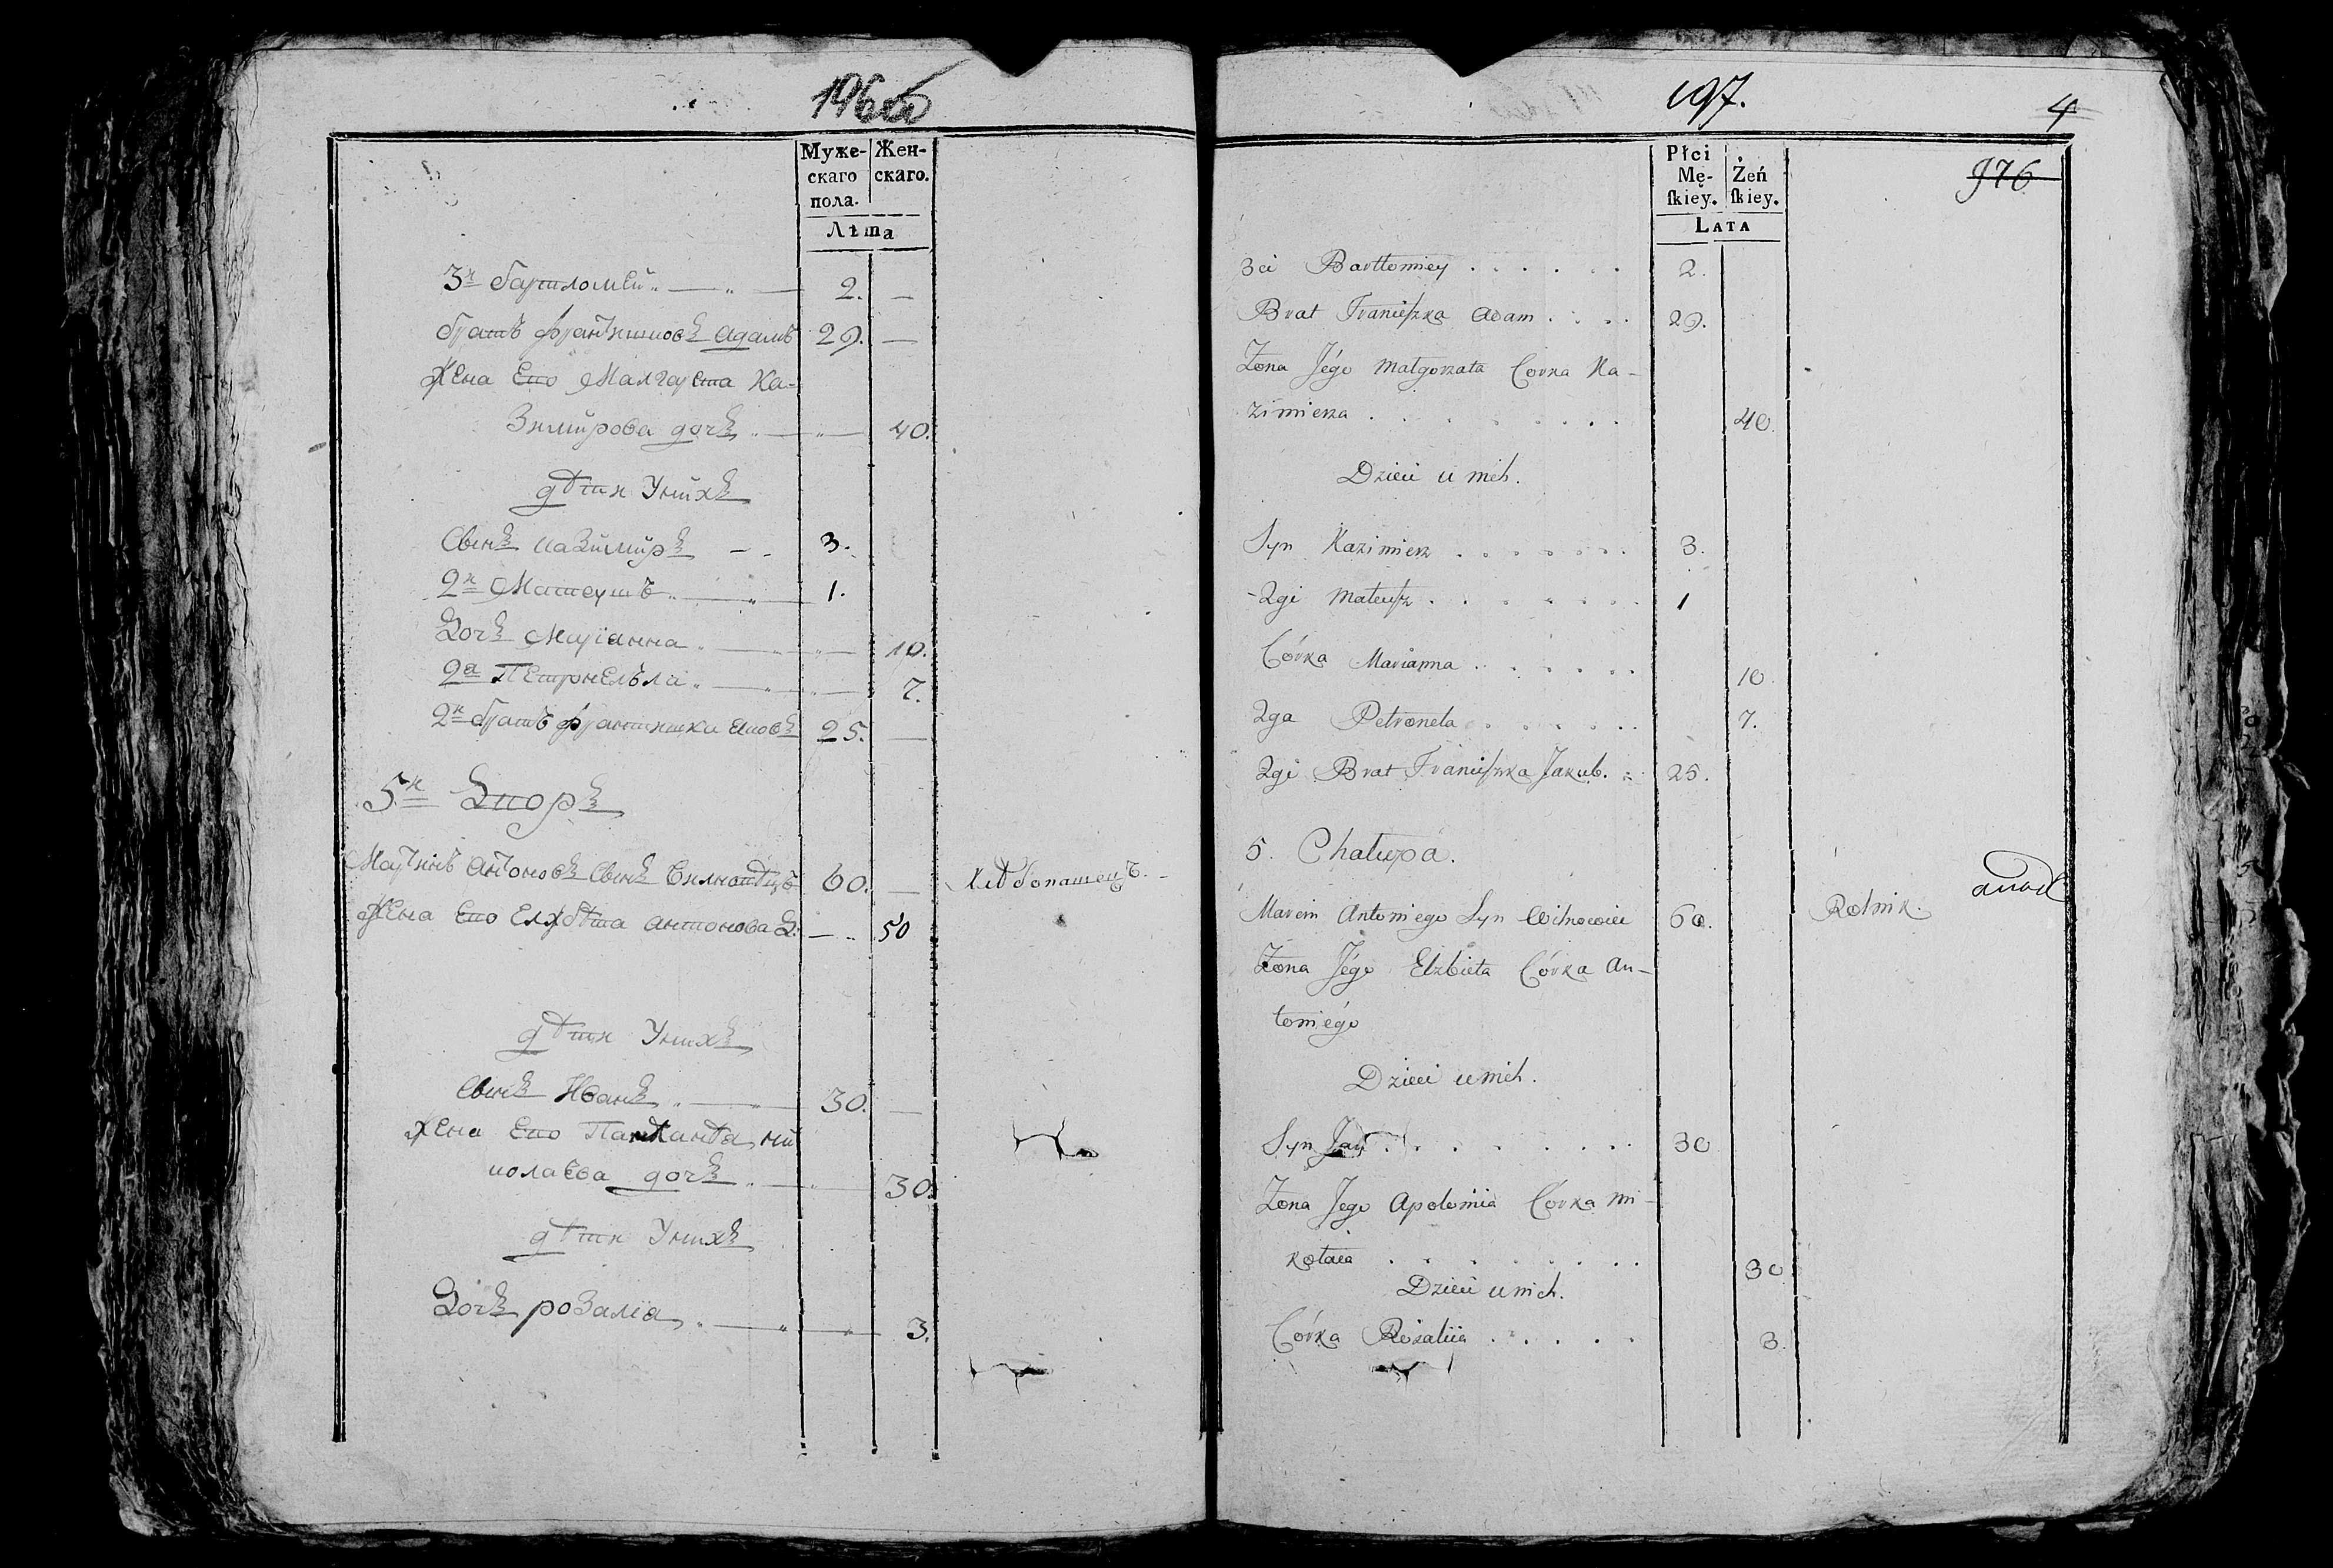 Муже-
скаго
пола.
Жен-
скаго.
Лѣта
3й Бартломѣй 2. —
братъ Францишковъ Адамъ 29. —
Жена Его Малгарета Ка-
Зимирова дочь 40.
дѣти Унихъ
Сынъ Казимиръ 3.
2й Матеушъ 1.
Дочь Маріанна 10.
2я 7.
2й братъ Франтишка 25. —
5й Дворъ
Марцинъ Антоновъ Сынъ 60. — Хлѣбопашецъ
Жена Его Елжбѣта Антонова Д. — 50
дѣти Унихъ
Сынъ Иванъ 30. —
Жена Его Ни
колаева дочь 30.
дѣти Унихъ
Дочь розаліа 3.
197.
4
976
Płci
Mę-
ſkiey.
Żeń
ſkiey.
LATA
3ci Bartłomiey . . . . . . 2.
Brat Franciſzka Adam . . . . 29.
Zona Jégo Małgorzata Corka Ka-
zimierza . . . . . . . . 40.
Dzieci u nich.
Syn Kazimierz . . . . . . . 3.
2gi Mateuſz . . . . . . . 1
Córka Marianna . . . . . . 10.
2ga Petronela . . . . . . 7.
2gi Brat Franciſzka Jakub. 25.
5. Chałupa.
Marcin Antoniego Syn 60. Rolnik.
Zona Jégo Elzbieta Córka An-
toniégo
Dzieci u nich.
Syn Jan . . . . . . . . 30
Zona Jego Apolonia Córka Mi-
kołaia . . . . . . . . 30
Dzieci u nich.
Córka Rozaliia . . . . . 3.